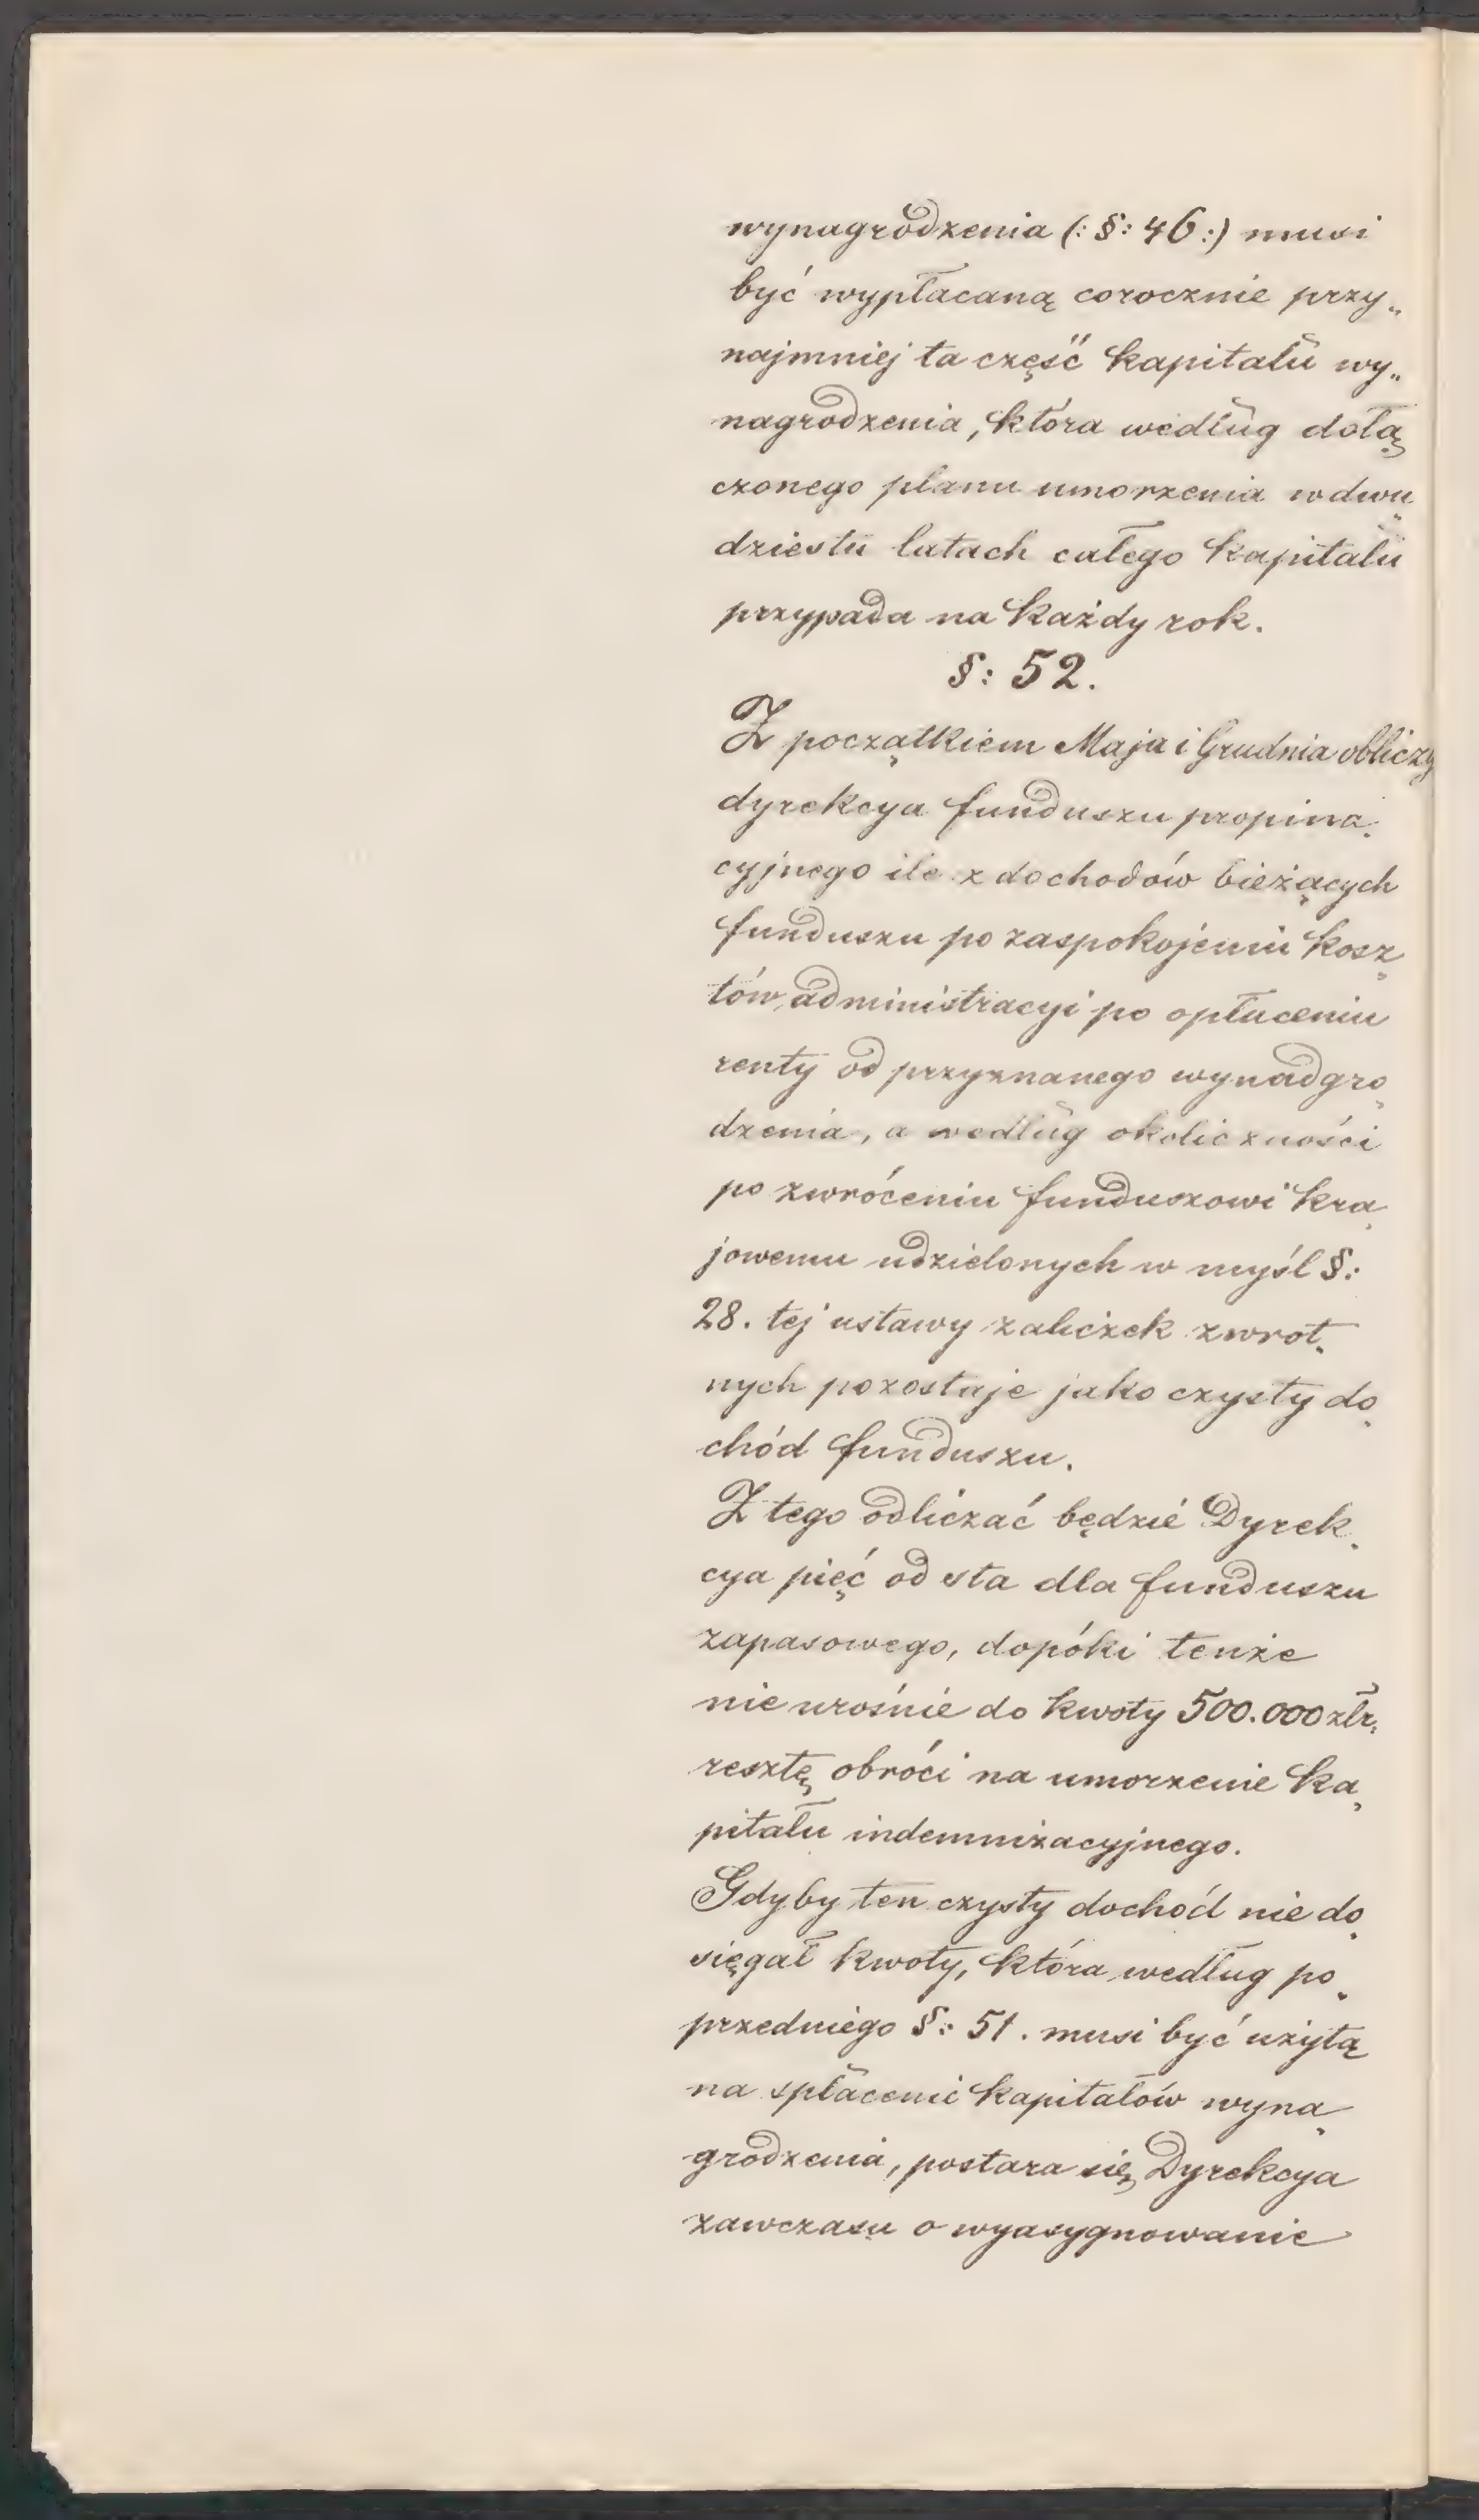 wynagrodzenia (: §: 46 :) musi
być wypłacaną corocznie przy„
najmniej ta część kapitału wy„
nagrodzenia, która według dołą„
czonego planu umorzenia w dwu„
dziestu latach całego kapitału
przypada na każdy rok.
§: 52.
Z początkiem Maja i Grudnia obliczy
dyrekcya funduszu propina„
cyjnego ile z dochodów bieżących
funduszu po zaspokojeniu kosz„
tów administracyi po opłaceniu
renty od przyznanego wynadgro„
dzenia, a według okoliczności
po zwróceniu funduszowi kra„
jowemu udzielonych w myśl §:
28. tej ustawy zaliczek zwrot„
nych pozostaje jako czysty do„
chód funduszu.
Z tego odliczać będzie Dyrek„
cya pięć od sta dla funduszu
zapasowego, dopóki tenże
nie urośnie do kwoty 500.000 złr,
resztę obróci na umorzenie ka„
pitału indemnizacyjnego.
Gdyby ten czysty dochód nie do„
sięgał kwoty, która według po„
przedniego §: 51. musi być użytą
na spłacenie kapitałów wyna„
grodzenia, postara się Dyrekcya
zawczasu o wyasygnowanie